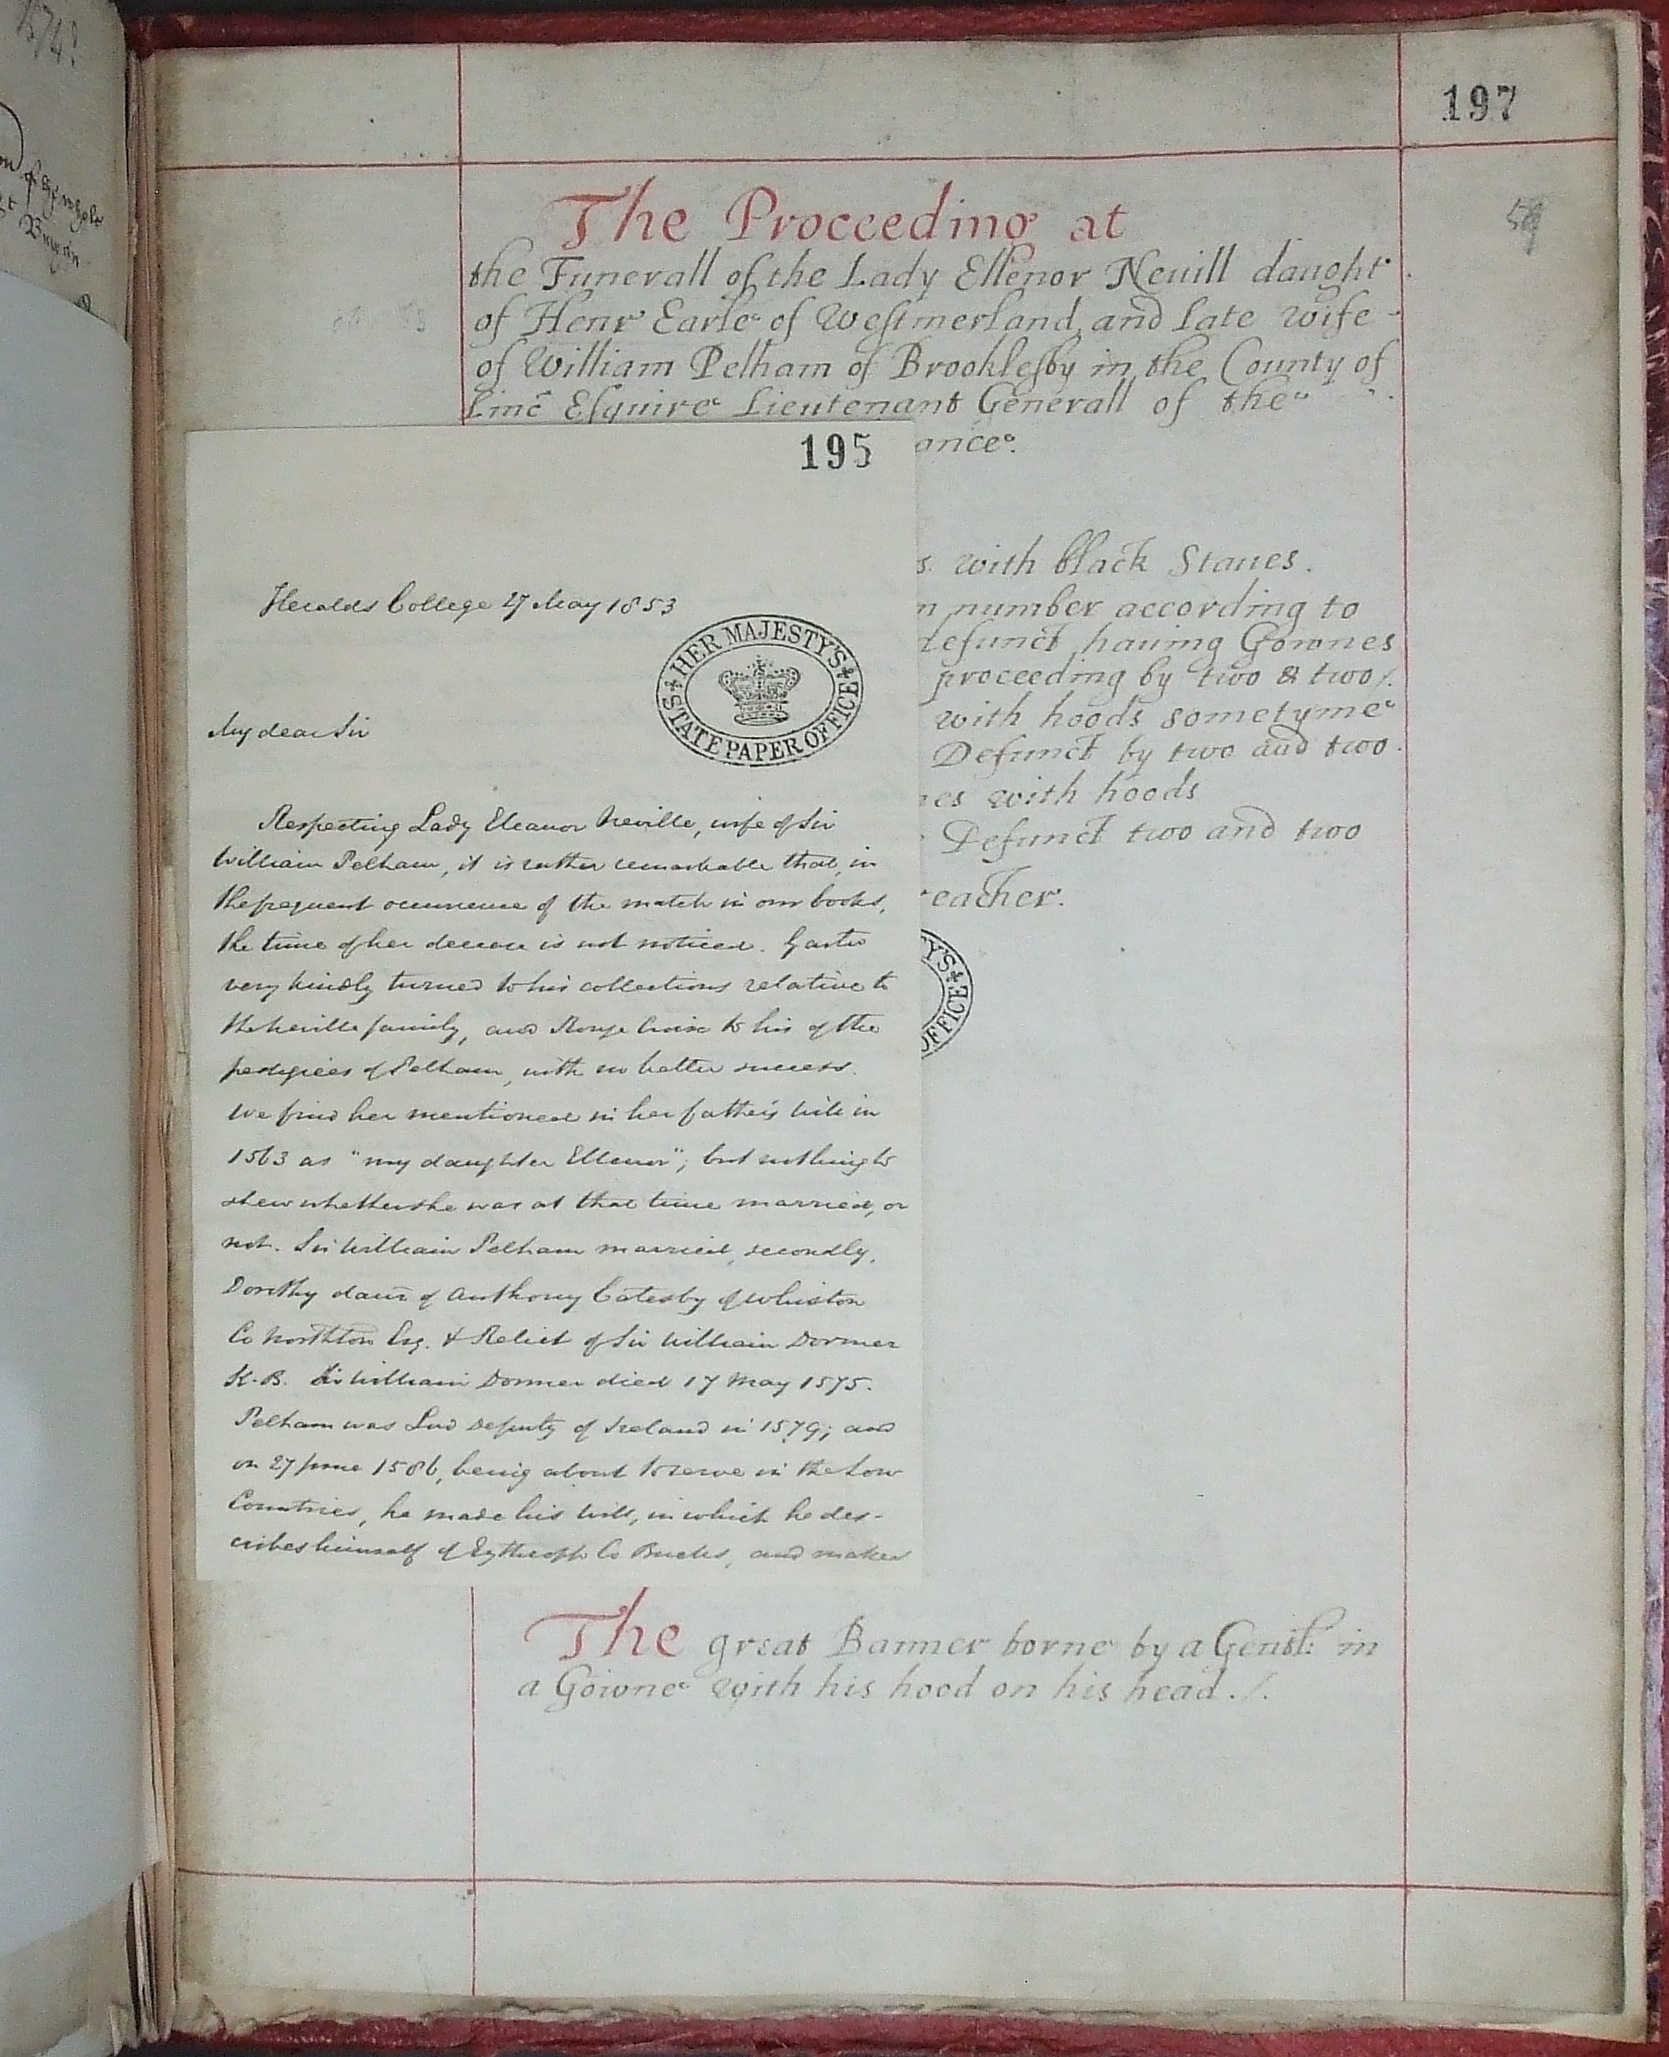 197
59
The Proceeding at
the Funerall of the Lady Ellenor Nevill daught
of Henr Earle of Westmerland, and late wife
of William Pelham of Brooklesby in the County of
Linc Esquire Lieutenant Generall of the
ance.
s. with black Staues.
n number according to
defunct, having Gownes
proceeding by two & two/.
with hoods sometyme
Defunct by two and two.
nes with hoods
Defunct two and two
reacher.
YS
OFFICE
The great Banner borne by a Gentl: in
a Gowne with his hood on his head./.
195
Heralds College 27 May 1853
HER MAJESTY'S
STATE PAPER OFFICE
My dear Sir
Respecting Lady Eleanor Neville, wife of Sir
William Pelham, it is rather remarkable that, in
the frequent occurrence of the match in our books,
the time of her decease is not noticed. Garter
very kindly turned to his collections relative to
the Neville family, and Rouge Croix to his of the
pedigrees of Pelham, with no better success.
We find her mentioned in her father's will in
1563 as "my daughter Ellenor"; but nothing to
shew whether she was at that time married, or
not. Sir William Pelham married, secondly,
Dorothy daur of Anthony Catesby of Whiston
Co Northton Esq. & Relict of Sir William Dormer
K.B. Sir William Dormer died 17 May 1575.
Pelham was Lord Deputy of Ireland in 1579; and
on 27 June 1586, being about to serve in the Low
Countries, he made his will, in which he des-
cribes himself of Eythropp Co Bucks, and makes